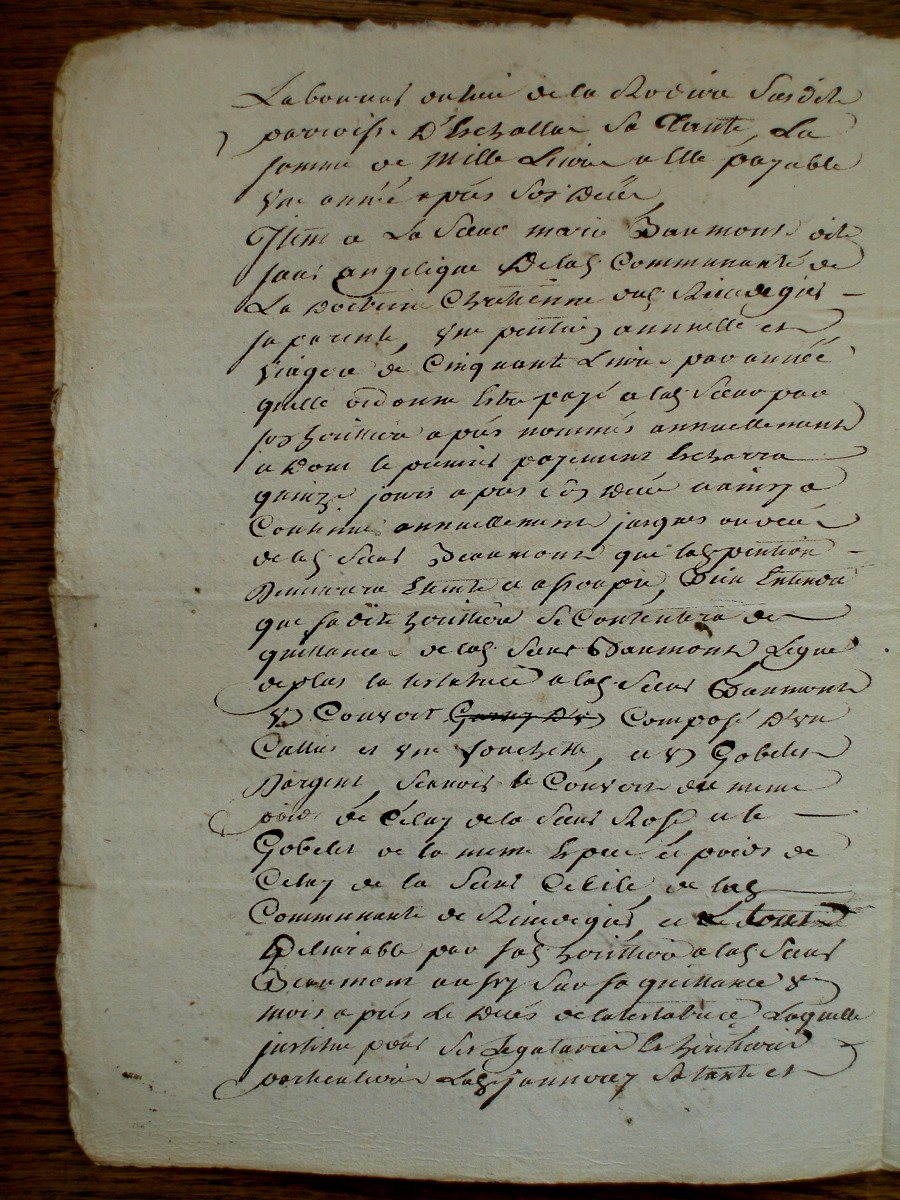 La bonnas du lieu de la Rodiere susdite
paroisse D'Echallas sa Tante, La
somme de Mille Livres a Elle payable
vne année apres son Decés
Item a La Sœur marie Beaumont dite
sœur angelique De lad Communauté de
La Doctrine Chretienne dud Rivedegier
sa parente, vne pention annuelle et
viagere de Cinquante Livres par année
quelle ordonne Estre payé a lad Sœur par
son heritiere apres nommés annuellement
a Dont le premier payement Echerra
quinze jours apres son Decés a ainsy a
Continuer annuellement jusques au decés
de lad Sœur Beaumont que lad pention
Demeurera Eteinte et assoupie, Bien Entendu
que sa dite heritiere se Contentera de
quittances de lad Sœur Beaumont Legue
de plus la testatrice a lad Sœur Beaumont
vn Couvert Garny D'vn Composé D'vne
Cuilliere et vne fourchette, et vn Gobelet
D'argent, scavoir le Couvert du meme
poids de Celuy de la Sœur Rose, et le
Gobelet de la meme Espece et poids de
Celuy de la Sœur Cecile, de lad
Communauté de Rivedegier, et Le tout
Delivrable par sad heritiere a lad Sœur
Beaumont aussy Sur sa quittance vn
mois apres Le Decés de la testatrice Laquelle
institue pour Ses Legataires Et heritieres
particulieres Lad jannoray sa tante et